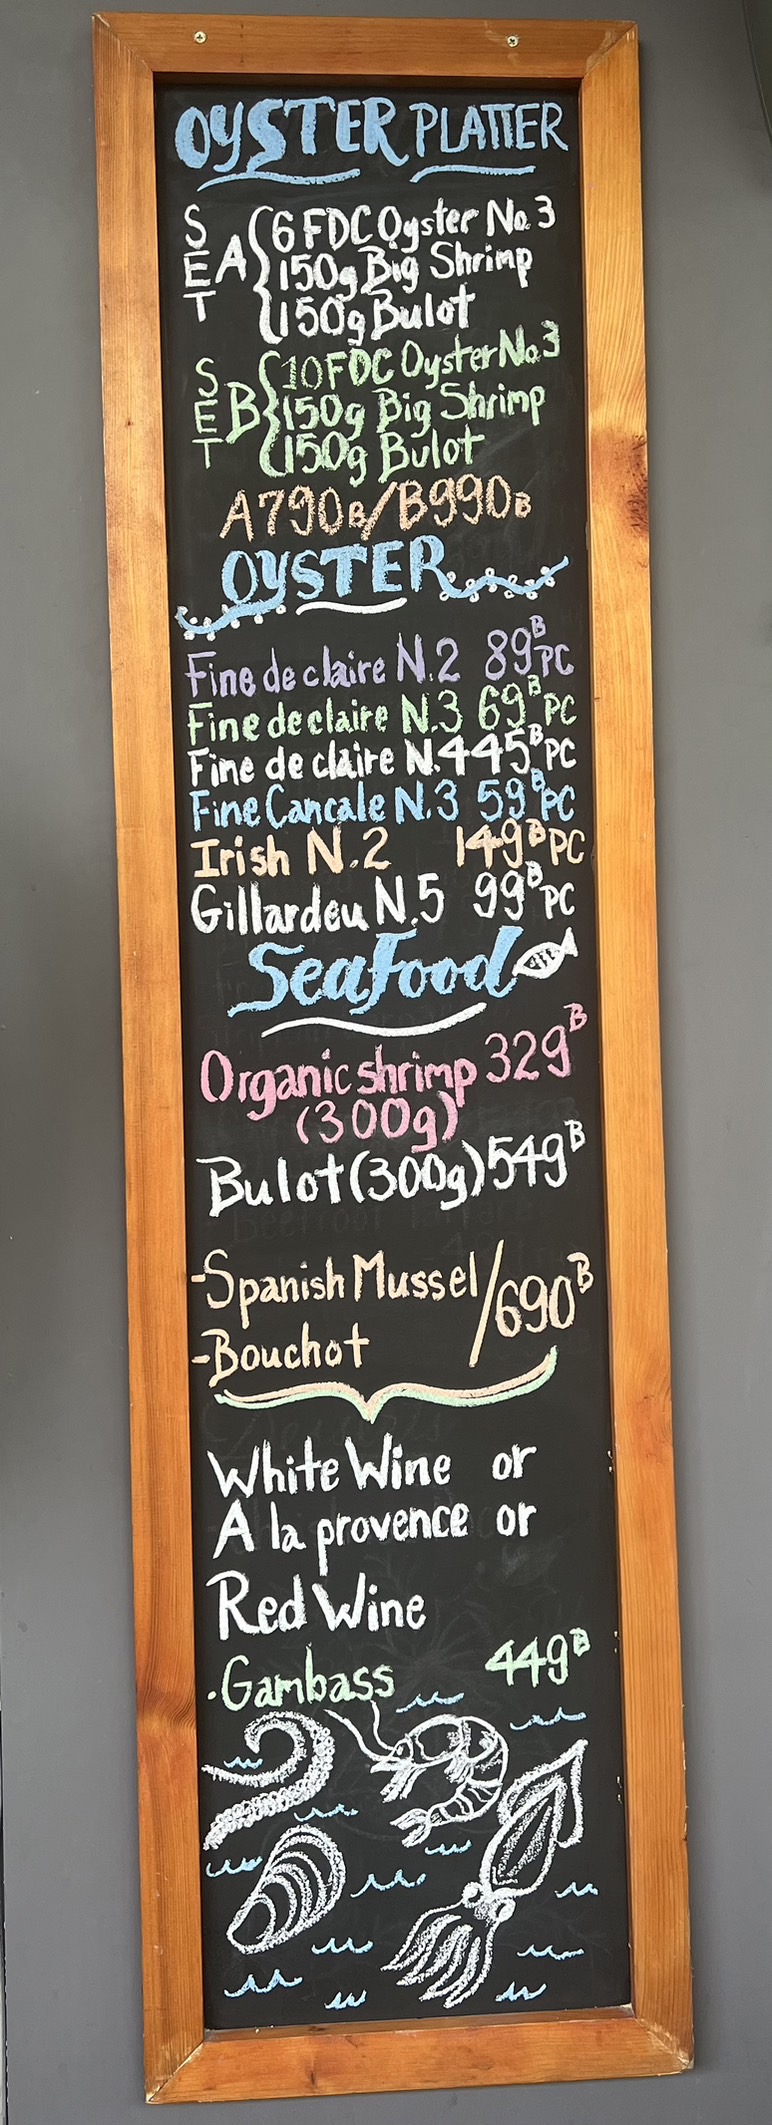 OYSTER PLATTER
SET A 6 FDC Oyster No.3
150g Big Shrimp
150g Bulot
SET B 10 FDC Oyster No.3
150g Big Shrimp
150g Bulot
A790B/B990B
OYSTER
Fine de claire N.2 89B PC
Fine de claire N.3 69B PC
Fine de claire N.4 45B PC
Fine Cancale N.3 59B PC
Irish N.2 149B PC
Gillardeu N.5 99B PC
Seafood
Organic shrimp 329B
(300g)
Bulot (300g) 549B
-Spanish Mussel /690B
-Bouchot
White Wine or
A la provence or
Red Wine
.Gambass 449B